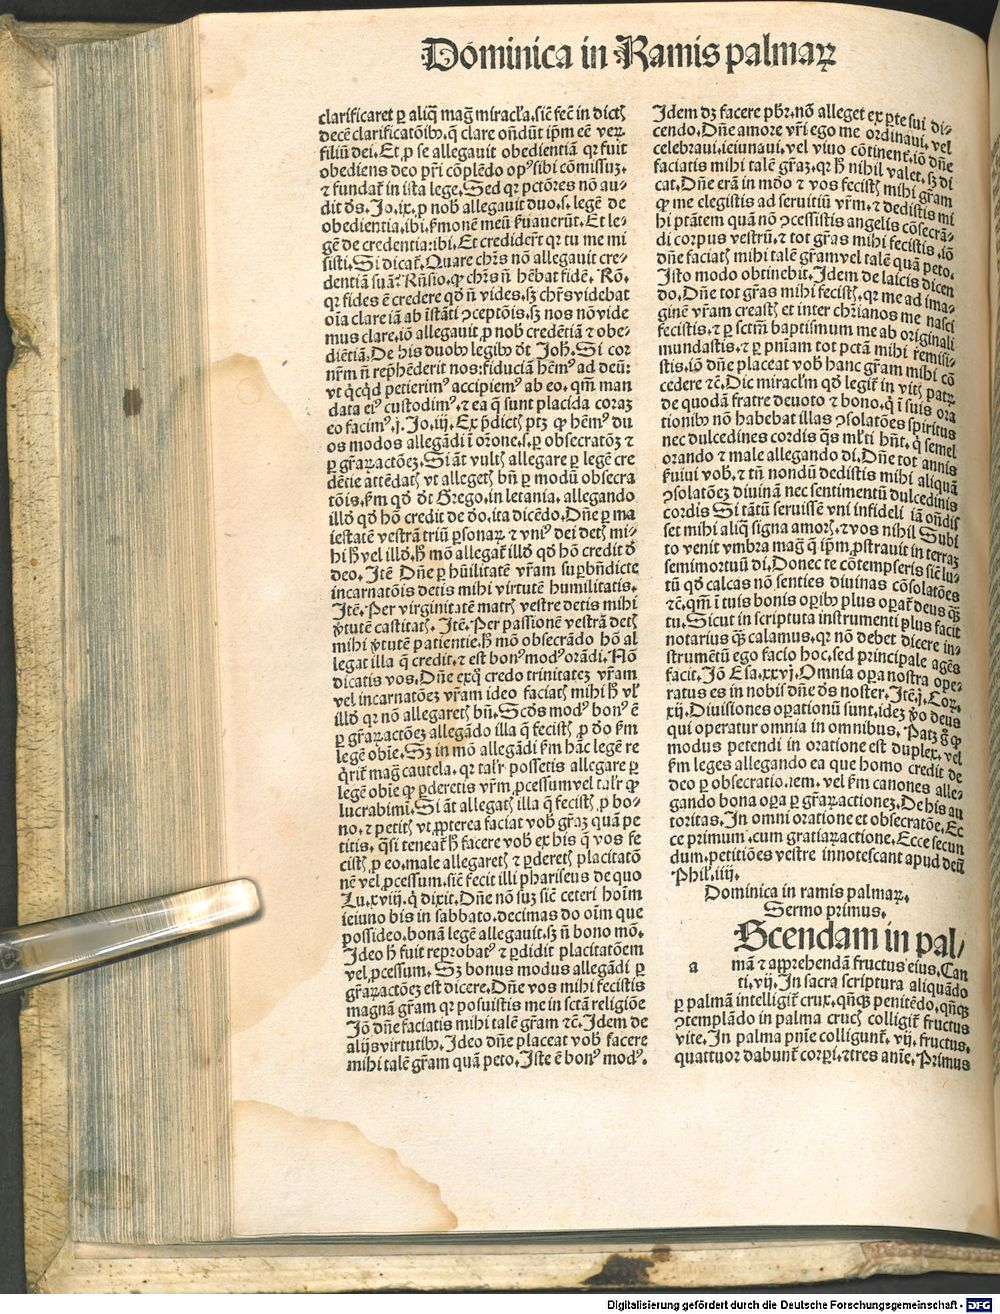 Dominica in Ramis palmaꝝ
clarificaret ꝑ aliq̄ mag̃ miracl̃a.sic̃ fec̃ in dictꝭ
decē clarificatōibꝰ.q̄ clare on̄dūt ip̄m eē veꝝ
filiū dei.Et ꝓ se allegauit obedientiā qꝛ fuit
obediens deo pr̄i cōplēdo opꝰ sibi cōmissuꝫ.
⁊ fundat̃ in ista lege.Sed qꝛ pctōres nō au-
dit dꝰs.Jo.ix.ꝓ nob̃ allegauit duo.s.legē de
obedientia.ibi.ẜmonē meū ẜuauerūt.Et le-
gē de credentia:ibi.Et credidert̃ qꝛ tu me mi
sisti.Si dicat̃.Quare chr̄s nō allegauit cre-
dentiā suā? Rn̄sio.qꝙ chr̄s nō hēbat fidē. Rō.
qꝛ fides ē credere qd̓ nō vides.sꝫ chr̄s videbat
oīa clare iā ab īstāti ꝯceptōis.sꝫ nos nō vide
mus clare.iō allegauit ꝓ nob̃ credētiā ⁊ obe-
diētiā.De his duobꝰ legibꝰ dt̓ Joh̃.Si cor
nr̄m nō rep̄hēderit nos:fiduciā hēmꝰ ad deū:
vt q̇cq̇d petierimꝰ accipiemꝰ ab eo.qm̄ man
data eiꝰ custodimꝰ.⁊ ea q̄ sunt placida coraꝫ
eo facimꝰ.j.Jo.iij.Ex p̄dictꝭ ptꝫ qꝙ hēmꝰ du
os modos allegādi ī orōne.s.ꝑ obsecratōꝫ ⁊
ꝑ gr̄aꝝactōeꝫ.Si āt vultꝭ allegare ꝑ legē cre
dētie attēdatꝭ vt allegetꝭ bn̄ ꝑ modū obsecra
tōis.ẜm qd̓ dt̓ Grego.in letania.allegando
illd̓ qd̓ hō credit de d̓o.ita dicēdo.Dn̄e ꝑ ma
iestatē vestrā triū ꝑsonaꝝ ⁊ vniꝰ dei detꝭ mi-
hi h̓ vel illd̓.h̓ mō allegat̃ illd̓ qd̓ hō credit d̓
deo.Itē Dn̄e ꝑ hūilitatē vr̄am suꝑbn̄dicte
incarnatōis detis mihi virtutē humilitatis.
Itē.Per virginitatē matrꝭ vestre detis mihi
v̓tutē castitatꝭ.Itē.Per passionē vestrā detꝭ
mihi v̓tutē patientie.h̓ mō obsecrādo hō al
legat illa q̄ credit.⁊ est bonꝰ modꝰ orādi.Nō
dicatis vos.Dn̄e exq̇ credo trinitateꝫ vr̄am.
vel incarnatōeꝫ vr̄am ideo faciatꝭ mihi h̓ vl̓
illd̓ qꝛ nō allegaretꝭ bn̄.Scd̓s modꝰ bonꝰ ē
ꝑ gr̄aꝝactōeꝫ allegādo illa q̄ fecistꝭ ꝓ d̓o ẜm
legē obīe.Sꝫ in mō allegādi ẜm hāc legē re
q̇rit̃ mag̃ cautela.qꝛ talr̃ possetis allegare ꝑ
legē obīe qꝙ ꝑderetis vr̄m ꝓcessum vel talr̃ qꝙ
lucrabimi.Si āt allegatꝭ illa q̄ fecistꝭ ꝓ bo-
no.⁊ petitꝭ vt ꝓpterea faciat vob̃ gr̄aꝫ quā pe
titis.q̄si teneat̃ h̓ facere vob̃ ex his q̄ vos fe
cistꝭ ꝓ eo.male allegaretꝭ ⁊ ꝑderetꝭ placitatō
nē vel ꝓcessum.sic̃ fecit illi phariseus de quo
Lu.xviii.q̇ dixit.Dn̄e nō suꝫ sic̃ ceteri hoīm
ieiuno bis in sabbato.decimas do oīm que
possideo.bonā legē allegauit.sꝫ nō bono mō.
Ideo h̓ fuit reꝓbatꝰ ⁊ ꝑdidit placitatōem
vel ꝓcessum.Sꝫ bonus modus allegādi ꝑ
gr̄aꝝactōeꝫ est dicere.Dn̄e vos mihi fecistis
magnā gr̄am qꝛ posuistis me in sctā religiōe
Iō dn̄e faciatis mihi talē gr̄am ⁊c.Idem de
alijs virtutibꝰ.Ideo dn̄e placeat vob̃ facere
mihi talē gr̄am quā peto.Iste ē bonꝰ modꝰ.
Idem dꝫ facere pbr̄.nō alleget ex ꝑte sui di-
cendo.Dn̄e amore vr̄i ego me ordinaui.vel
celebraui.ieiunaui.vel viuo cōtinent̃.iō dn̄e
faciatis mihi talē gr̄aꝫ.qꝛ h̓ nihil valet.sꝫ di
cat.Dn̄e erā in mūdo ⁊ vos fecistꝭ mihi gr̄am
qꝙ me elegistis ad seruitiū vr̄m.⁊ dedistis mi
hi ptātem quā nō ꝯcessistis angelis cōsecrā-
di corpus vestrū.⁊ tot gr̄as mihi fecistis.iō
dn̄e faciatꝭ mihi talē gr̄am vel talē quā peto.
Isto modo obtinebit.Idem de laicis dicen
do.Dn̄e tot gr̄as mihi fecistꝭ.qꝛ me ad ima-
ginē vr̄am creastꝭ et inter chr̄ianos me nasci
fecistis.⁊ ꝑ sctm̄ baptismum me ab originali
mundastis.⁊ ꝑ pn̄iam tot pctā mihi remisi-
stis.iō dn̄e placeat vob̃ hanc gr̄am mihi cō
cedere ⁊c.Dic miracl̓m qd̓ legit̃ in vitꝭ patꝝ
de quodā fratre deuoto ⁊ bono.q̇ ī suis ora
tionibꝰ nō habebat illas ꝯsolatōes spiritus
nec dulcedines cordis q̄s ml̓ti hn̄t.q̇ semel
orando ⁊ male allegando di.Dn̄e tot annis
ẜuiui vob̃.⁊ tn̄ nondū dedistis mihi aliquā
ꝯsolatōeꝫ diuinā nec sentimentū dulcedinis
cordis Si tātū seruissē vni infideli iā on̄dis
set mihi aliq̄ signa amorꝭ.⁊ vos nihil Subi
to venit vmbra mag̃ q̄ ip̄m ꝓstrauit in terraꝫ
semimortuū di.Donec te cōtempseris sic̃ lu-
tū qd̓ calcas nō senties diuinas cōsolatōes
⁊c.qm̄ ī tuis bonis oꝑibꝰ plus oꝑat̃ deus q̄ꝫ
tu.Sicut in scriptura instrumenti plus facit
notarius q̄ꝫ calamus.qꝛ nō debet dicere in-
strumētū ego facio hoc.sed principale agēs
facit.Iō Esa.xxvj.Omnia oꝑa nostra oꝑe-
ratus es in nobis dn̄e dꝰs noster.Itē.j.Coꝝ.
xij.Diuisiones oꝑationū sunt.ideꝫ v̓o deus
qui operatur omnia in omnibus.Patꝫ g̊ qꝙ
modus petendi in oratione est duplex.vel
ẜm leges allegando ea que homo credit de
deo ꝑ obsecratio.nem.vel ẜm canones alle-
gando bona oꝑa ꝑ gr̄aꝝactioneꝫ.De his au
toritas.In omni oratione et obsecratōe.Ec
ce primum.cum gratiaꝝactione.Ecce secun
dum.petitiōes vestre innotescant apud deū
Phil̓.iiij.
Dominica in ramis palmaꝝ.
Sermo primus.
Scendam in pal-
a mā ⁊ apprehendā fructus eius.Can
ti.vij.In sacra scriptura aliquādo
ꝑ palmā intelligit̃ crux.qn̄qꝫ penitēdo.qn̄qꝫ
ꝯtemplādo in palma crucꝭ colligit̃ fructus
vite.In palma pn̄ie colligunt̃.vij.fructus.
quattuor dabunt̃ corꝑi.⁊ tres anīe.Primus
Digitalisierung gefördert durch die Deutsche Forschungsgemeinschaft - DFG